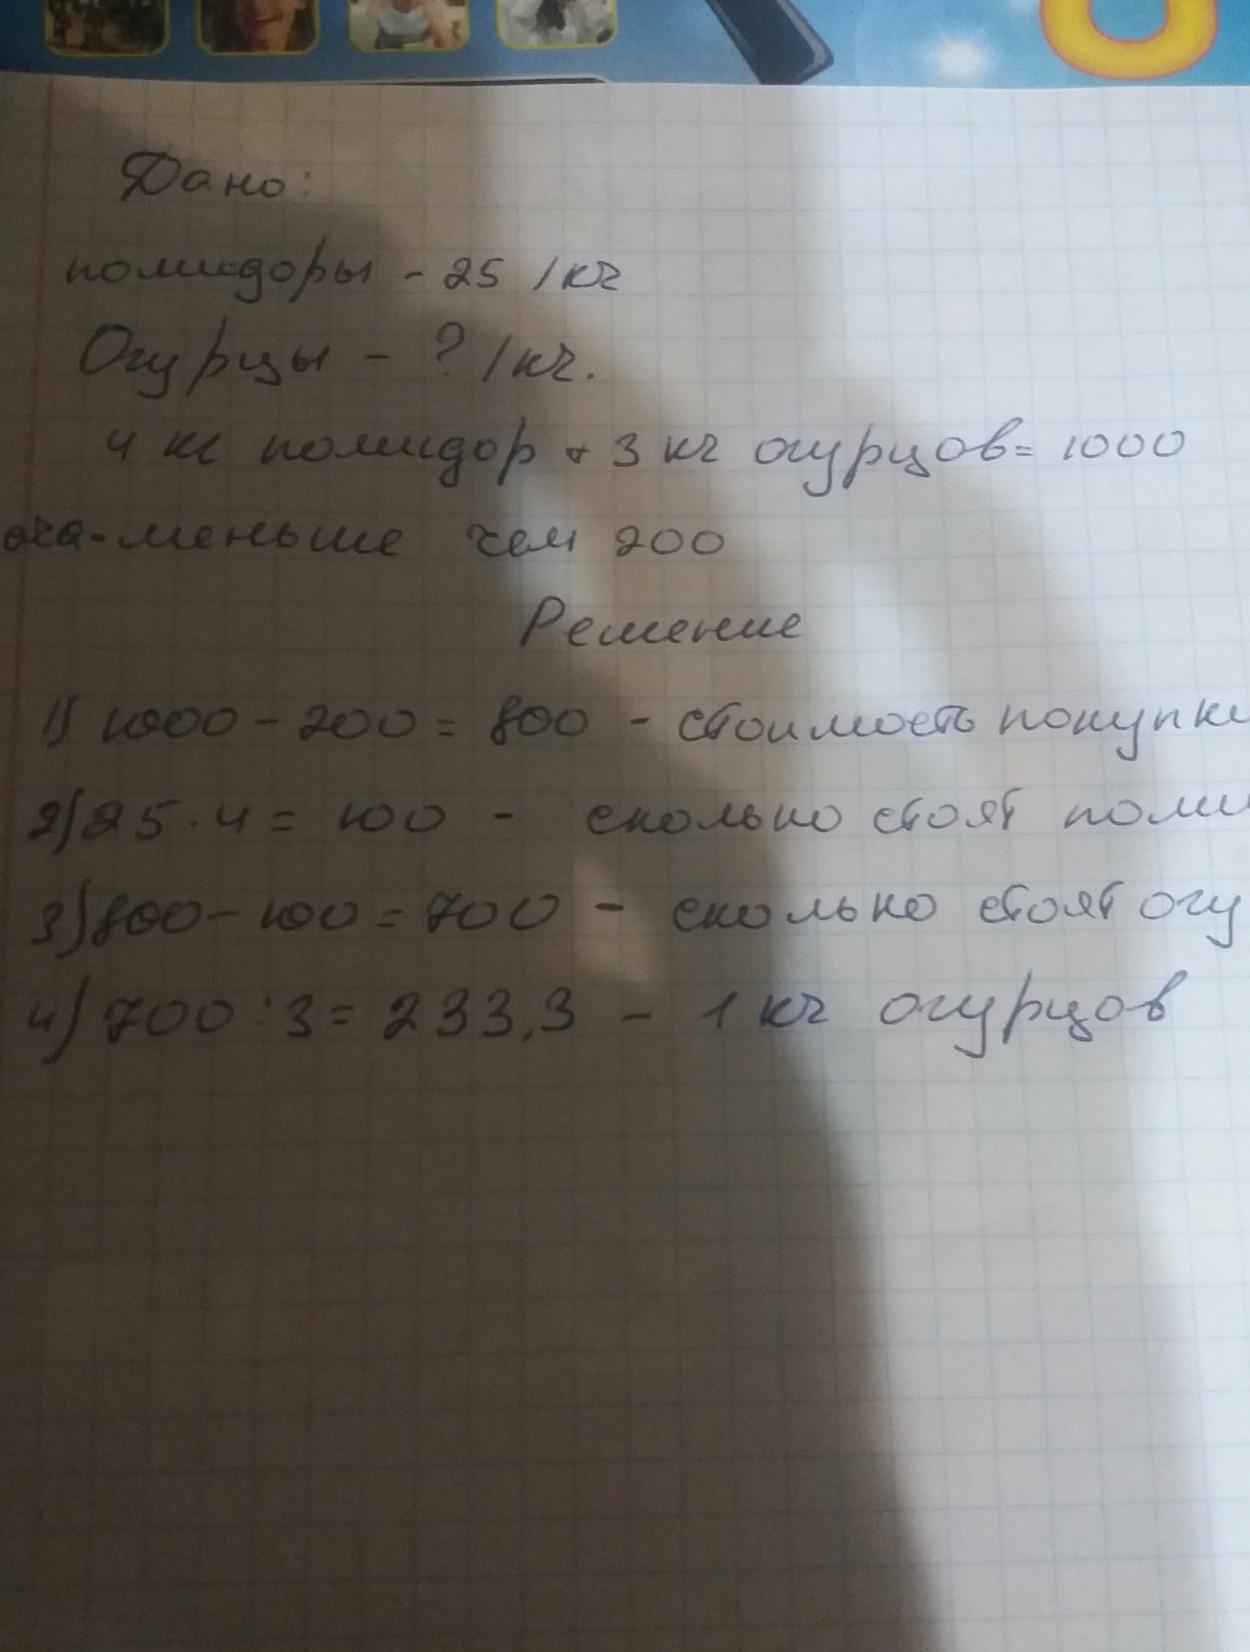 Дано:
помидоры - 25 /кг
Огурцы - ? /кг.
4 кг помидор + 3 кг огурцов = 1000
меньше чем 200
Решение
1) 1000 - 200 = 800 - стоимость покупки
2) 25 · 4 = 100 - сколько стоят поми
3) 800 - 100 = 700 - сколько стоят огу
4) 700 : 3 = 233,3 - 1 кг огурцов